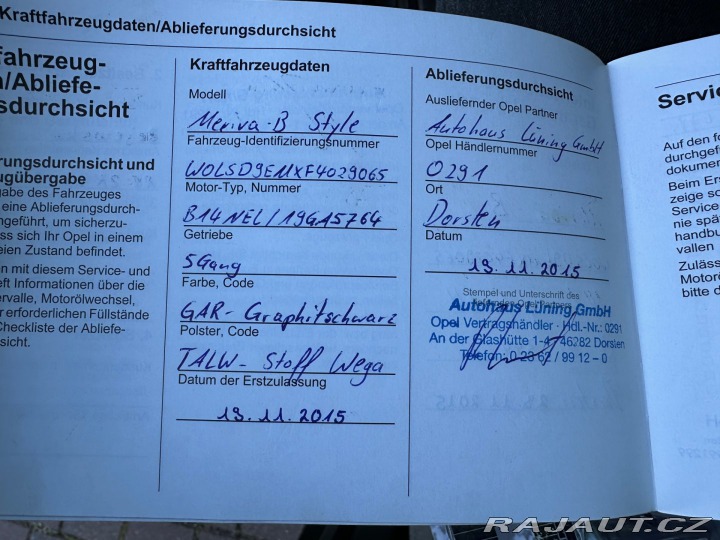 Kraftfahrzeugdaten/Ablieferungsdurchsicht
fahrzeug-
n/Abliefe-
sdurchsicht
erungsdurchsicht und
ugübergabe
gabe des Fahrzeuges
eine Ablieferungsdurch-
ngeführt, um sicherzu-
ss sich Ihr Opel in einem
eien Zustand befindet.
n mit diesem Service- und
eft Informationen über die
ervalle, Motorölwechsel,
r erforderlichen Füllstände
Checkliste der Abliefe-
sicht.
Kraftfahrzeugdaten
Modell
Meriva-B Style
Fahrzeug-Identifizierungsnummer
W0LSD9EMXF4029065
Motor-Typ, Nummer
B14NEL/19GA5764
Getriebe
5Gang
Farbe, Code
GAR- Graphitschwarz
Polster, Code
TALW- Stoff Wega
Datum der Erstzulassung
13.11.2015
Ablieferungsdurchsicht
Ausliefernder Opel Partner
Autohaus Lüning GmbH
Opel Händlernummer
0291
Ort
Dorsten
Datum
13.11.2015
Stempel und Unterschrift des
Autohaus Lüning GmbH
Opel Vertragshändler · Hdl.-Nr.: 0291
An der Glashütte 1-4 · 46282 Dorsten
Telefon: 0 23 62 / 99 12 – 0
Service
Auf den fo
durchgef
dokumen
Beim Ers
zeige so
Service
nie spä
handbu
vallen
Zuläss
Motorö
bitte d
RAJAUT.CZ